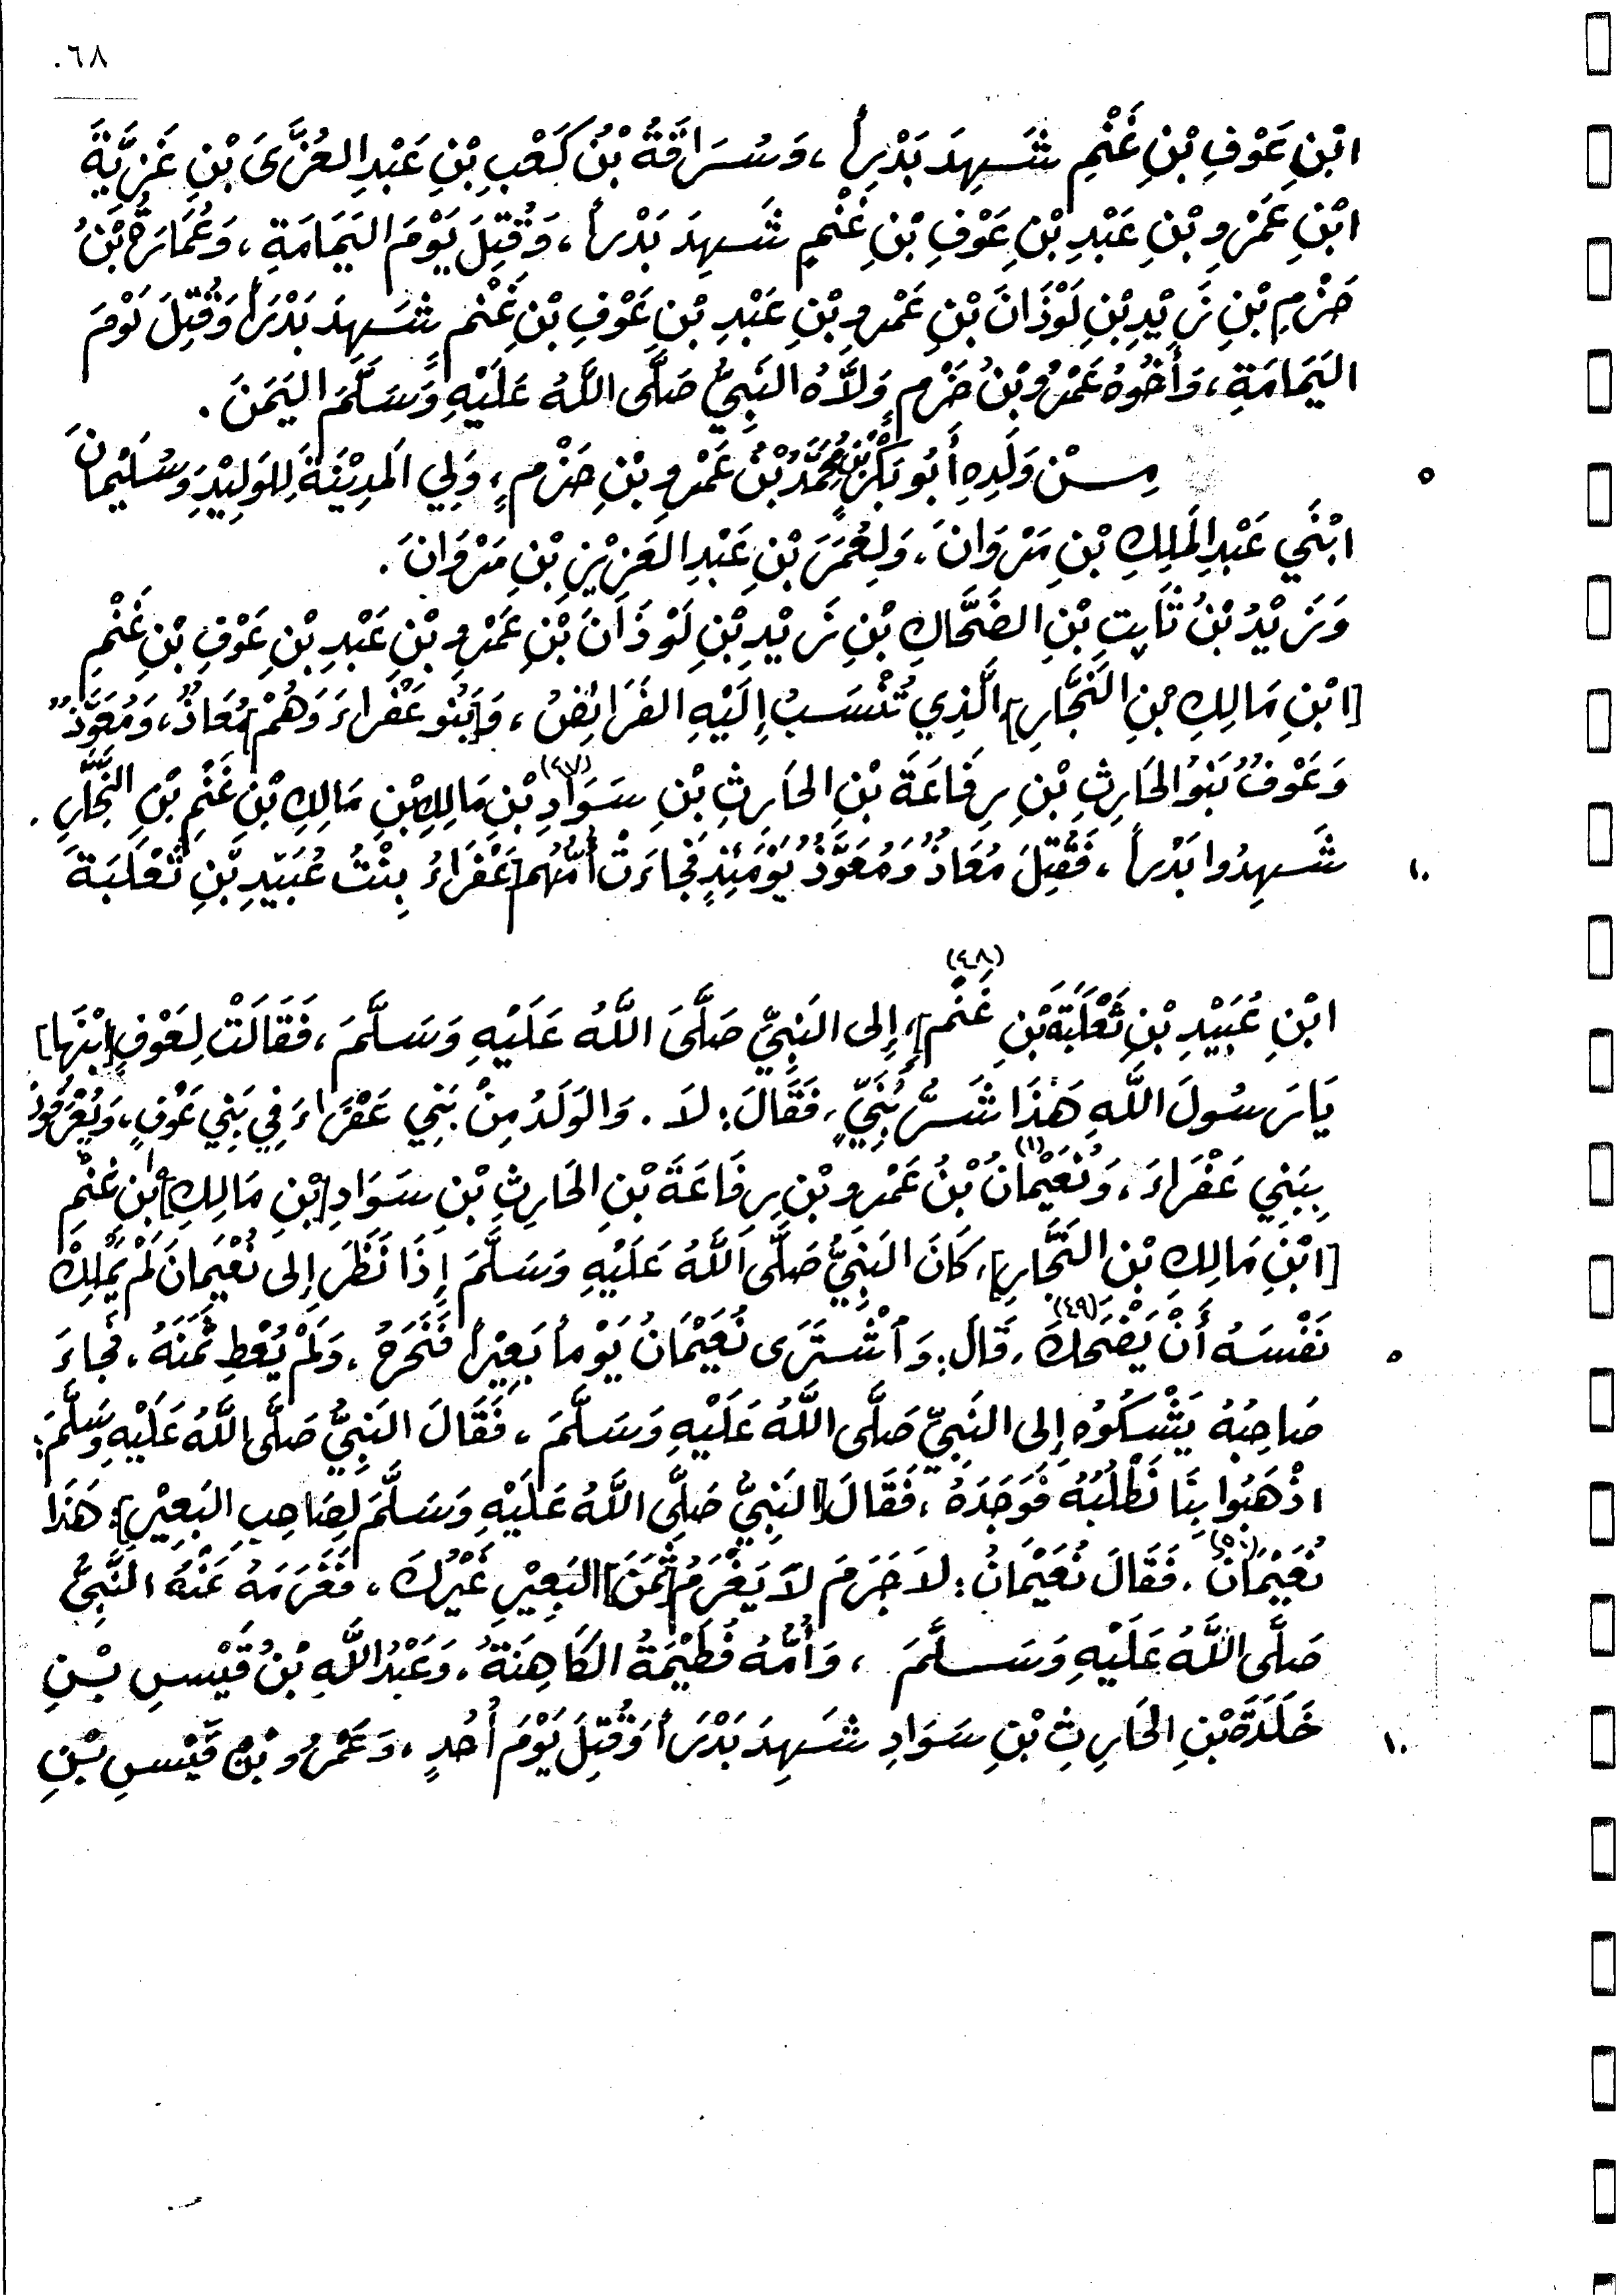 ٦٨.
ابْنِ عَوْفِ بْنِ غَنْمِ شَهِدَ بَدْراً، وَسُرَاقَةُ بْنُ كَعْبِ بْنِ عَبْدِ العُزَّى بْنِ غَزِيَّةَ
ابْنِ عَمْرِو بْنِ عَبْدِ بْنِ عَوْفِ بْنِ غَنْمِ شَهِدَ بَدْراً، وَقُتِلَ يَوْمَ اليَمَامَةِ، وَعُمَارَةُ بْنُ
حَزْمِ بْنِ زَيْدِ بْنِ لَوْذَانَ بْنِ عَمْرِو بْنِ عَبْدِ بْنِ عَوْفِ بْنِ غَنْمِ شَهِدَ بَدْراً وَقُتِلَ يَوْمَ
اليَمَامَةِ، وَأَخُوهُ عَمْرُو بْنُ حَزْمٍ وَلَّاهُ النَبِيُّ صَلَّى اللَّهُ عَلَيْهِ وَسَلَّمَ اليَمَنَ.
٥ مِنْ وَلَدِهِ أَبُو بَكْرِ بْنُ مُحَمَّدُ بْنُ عَمْرِو بْنِ حَزْمٍ، وَلِي المَدِيْنَةَ لِلوَلِيْدِ وَسُلَيْمانَ
ابْنَي عَبْدِ المَلِكِ بْنِ مَرْوَانَ، وَلِعُمَرَ بْنِ عَبْدِ العَزِيْزِ بْنِ مَرْوَانَ.
وَزَيْدُ بْنُ ثَابِتِ بْنِ الضَحَّاكِ بْنِ زَيْدِ بْنِ لَوْذَانَ بْنِ عَمْرِو بْنِ عَبْدِ بْنِ عَوْفِ بْنِ غَنْمِ
[ابْنِ مَالِكِ بْنِ النَجَّارِ] الَّذِي تُنْسَبُ إِلَيْهِ الفَرَائِضُ، وَ[بَنُو عَفْراءَ وَهُمْ] مُعَاذٌ، وَمُعَوَّذٌ
وَعَوْفُ بَنُو الحَارِثِ بْنِ رِفَاعَةَ بْنِ الحَارِثِ بْنِ سَوَادِ (٤٧) بْنِ مَالِكِ بْنِ مَالِكِ بْنِ غَنْمِ بْنِ النَّجَّارِ.
١٠ شَهِدُوا بَدْراً، فَقُتِلَ مُعَاذُ وَمُعَوَّذُ يَوْمَئِذٍ فَجَاءَتْ أُمُّهُم [عَفْرَاءُ بِنْتُ عُبَيْدِ بْنِ ثَعْلَبَةَ
ابْنِ عُبَيْدِ بْنِ ثَعْلَبَةَ بْنِ غَنْمِ] (٤٨)، إِلى النَبِيِّ صَلَّى اللَّهُ عَلَيْهِ وَسَلَّمَ، فَقَالَتْ لِعَوْفٍ [ابْنَهَا]
يَا رَسُولَ اللَّهِ هَذَا شَرُّ بَنِيَّ، فَقَالَ: لَا. وَالوَلَدُ مِنْ بَنِي عَفْرَاءَ فِي بَنِي عَوْفٍ، وَيُعْرَفُونَ
بِبَنِي عَفْرَاءَ، وَنُعَيْمَانُ (١) بْنُ عَمْرِو بْنِ رِفَاعَةَ بْنِ الحَارِثِ بْنِ سَوَادِ [بْنِ مَالِكِ] بْنِ غَنْمِ
[ابْنِ مَالِكِ بْنِ النَجَّارِ]، كَانَ النَبِيُّ صَلَّى اللَّهُ عَلَيْهِ وَسَلَّمَ إِذَا نَظَرَ إِلى نُعَيْمَانَ لَمْ يَمْلِكْ
٥ نَفْسَهُ أَنْ يَضْحَكَ (٤٩)، قَالَ: وَاشْتَرَى نُعَيْمَانُ يَوْماً بَعِيْراً فَنَحَرَهُ، وَلَمْ يُعْطِ ثَمَنَهُ، فَجَاءَ
صَاحِبُهُ يَشْكُوهُ إِلى النَبِيِّ صَلَّى اللَّهُ عَلَيْهِ وَسَلَّمَ، فَقَالَ النَبِيُّ صَلَّى اللَّهُ عَلَيْهِ وَسَلَّمَ:
اذْهَبُوا بِنَا نَطْلُبُهُ فَوَجَدَهُ، فَقَالَ [النَبِيُّ صَلَّى اللَّهُ عَلَيْهِ وَسَلَّمَ لِصَاحِبِ البَعِيْرِ]: هَذَا
نُعَيْمَانُ (٥٠)، فَقَالَ نُعَيْمَانُ: لَا جَرَمَ لَا يَغْرَمُ [ثَمَنَ] البَعِيْرِ غَيْرُكَ، فَغَرِمَهُ عَنْهُ النَّبِيُّ
صَلَّى اللَّهُ عَلَيْهِ وَسَلَّمَ، وَأُمُّهُ فُطَيْمَةُ الكَاهِنَةُ، وَعَبْدُ اللَّهِ بْنُ قَيْسِ بْنِ
١٠ خَلَدَةَ بْنِ الحَارِثِ بْنِ سَوَادِ شَهِدَ بَدْرَاً وَقُتِلَ يَوْمَ أُحُدٍ، وَعَمْرُو بْنُ قَيْسِ بْنِ